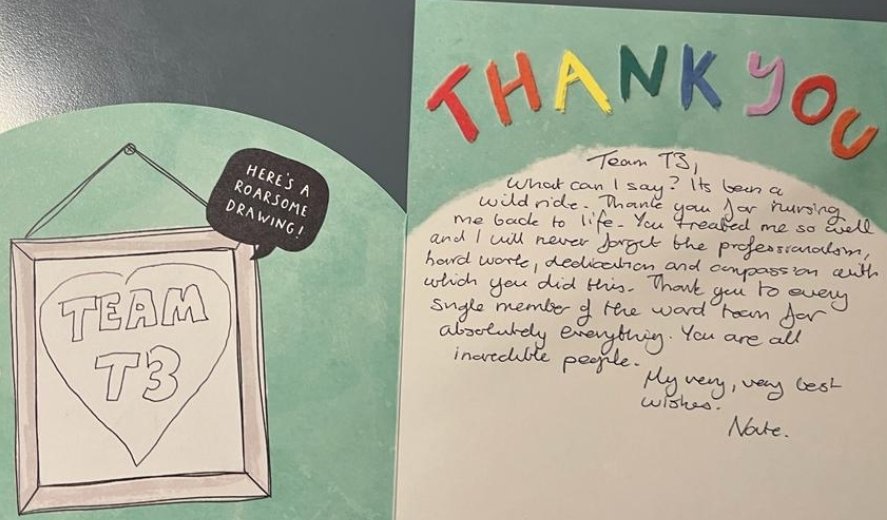 HERE'S A
ROARSOME
DRAWING!
TEAM
T3
THANK YOU
Team T3,
What can I say? Its been a
wild ride. Thank you for nursing
me back to life. You treated me so well
and I will never forget the professionalism,
hard work, dedication and compassion with
which you did this. Thank you to every
single member of the ward team for
absolutely everything. You are all
incredible people.
My very, very best
wishes.
Nate.